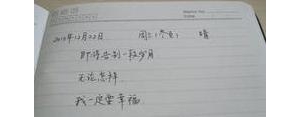 2015年12月22日 周二(冬至) 晴
即将告别一段岁月
无论怎样
我一定要幸福